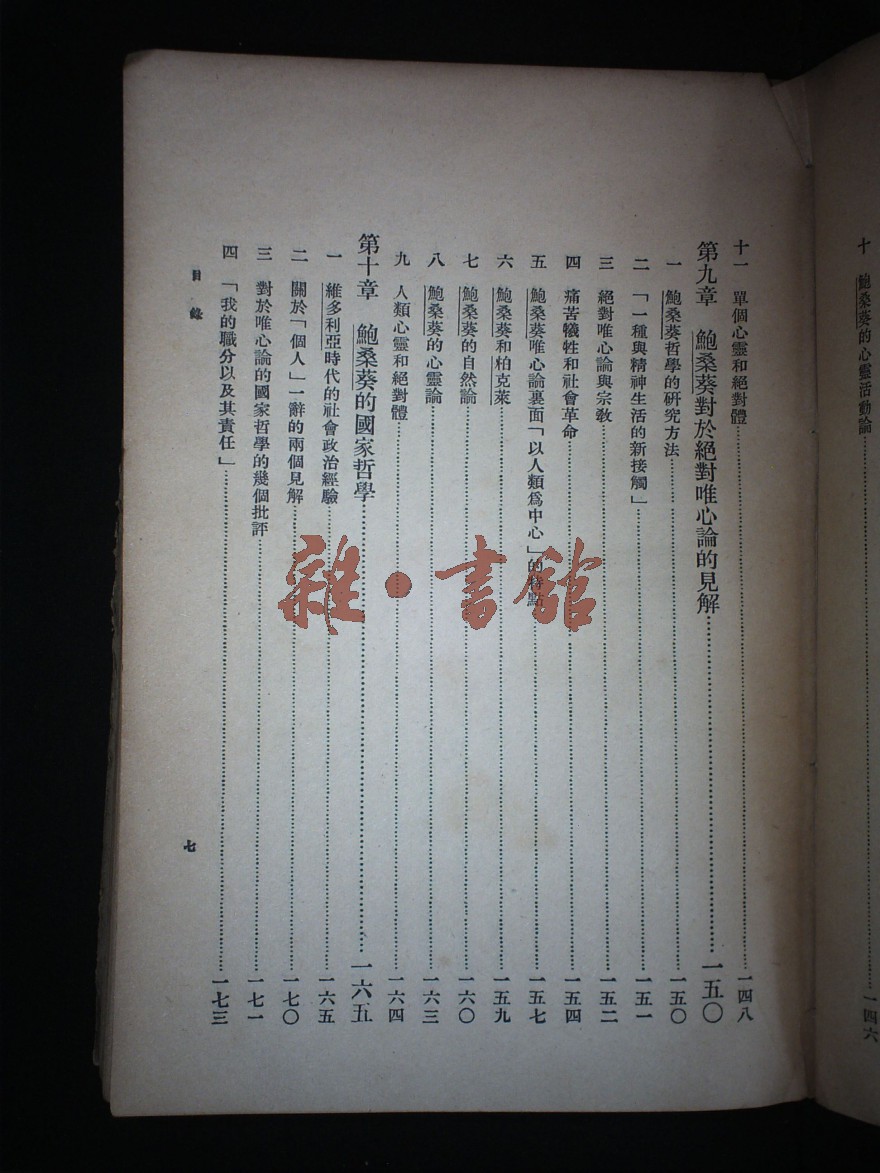 十　鮑桑葵的心靈活動論……一四六
十一　單個心靈和絕對體……一四八
第九章　鮑桑葵對於絕對唯心論的見解……一五〇
一　鮑桑葵哲學的研究方法……一五〇
二　「一種與精神生活的新接觸」……一五一
三　絕對唯心論與宗教……一五二
四　痛苦犧牲和社會革命……一五四
五　鮑桑葵唯心論裏面「以人類爲中心」的特點……一五七
六　鮑桑葵和柏克萊……一五九
七　鮑桑葵的自然論……一六〇
八　鮑桑葵的心靈論……一六三
九　人類心靈和絕對體……一六四
第十章　鮑桑葵的國家哲學……一六五
一　維多利亞時代的社會政治經驗……一六五
二　關於「個人」一辭的兩個見解……一七〇
三　對於唯心論的國家哲學的幾個批評……一七一
四　「我的職分以及其責任」……一七三
目錄
七
雜·書館